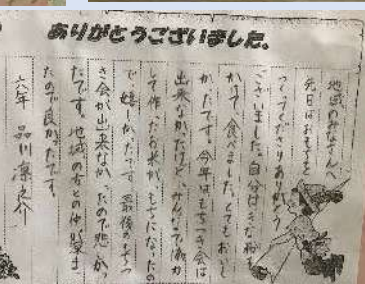 ありがとうございました。
地域のみなさんへ
先日はおもちを
つくってくださりありがとう
ございました。自分はきなこを
かけて食べました。とてもおいし
かったです。今年はもちつき会は
出来なかったけど、みんなで協力
して作ったお米がもちになったの
で嬉しかったです。最後のもちつ
き会が出来なかったので悲しかっ
たです。地域の方との仲が深ま
たので良かったです。
六年 品川 凛之介